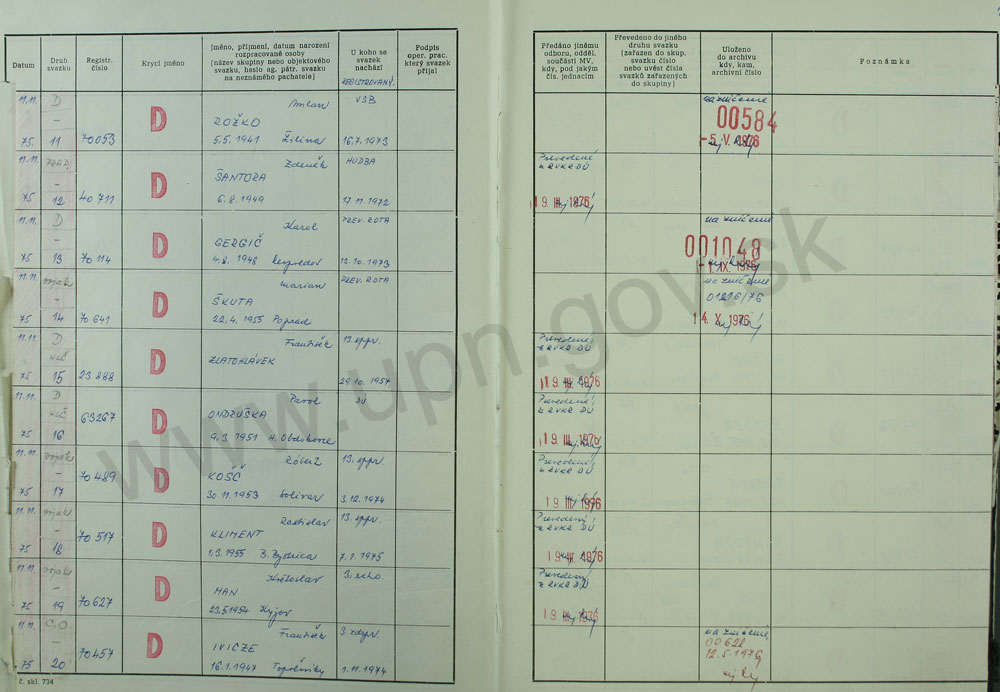 Datum
Druh svazku
Registr. číslo
Krycí jméno
Jméno, příjmení, datum narození
rozpracované osoby
(název skupiny nebo objektového
svazku, heslo ag. pátr. svazku
na neznámého pachatele)
U koho se
svazek
nachází
REGISTROVANÝ
Podpis
oper. prac.
který svazek
přijal
Předáno jinému
odboru, odděl.
součásti MV,
kdy, pod jakým
čís. jednacím
Převedeno do jiného
druhu svazku
(zařazen do skup.
svazku číslo
nebo uvést čísla
svazků zařazených
do skupiny)
Uloženo
do archivu
kdy, kam,
archivní číslo
Poznámka
11.11. D Milan VSB na zničenie
– D ROŽKO 00584
75 11 70053 5.5.1941 Žilina 16.7.1973 -5.V.1976
11.11. Zdeněk HUDBA Prevedené
– D ŠANTORA
75 12 40711 6.8.1949 17.11.1972 19.III.1976
11.11. D Karol PREV. ROTA na zničenie
– D GERGIČ 001048
75 13 70114 4.8.1948 12.10.1973 -1.IX.1976
11.11. voják Marian PREV. ROTA na zničenie
– D ŠKUTA 01216/76
75 14 70641 22.4.1955 Poprad 14.X.1976
11.11. D František 13. Prevedené
D ZLATOHLÁVEK
75 15 23888 29.10.1957 19.III.1976
11.11. D Pavol DÚ Prevedené
63267 D ONDRUŠKA
75 16 9.3.1951 19.III.1976
11.11. voják Róbert 13. Prevedené
– 70489 D KOŠČ
75 17 30.11.1953 Solivar 3.12.1974 19.III.1976
11.11. voják Rastislav 13. Prevedený
– 70517 D KLIMENT
75 18 1.3.1955 B. Bystrica 7.1.1975 19.III.1976
11.11. voják Prevedený
– D MAN
75 19 70627 23.5.1954 Kyjov 19.III.1976
11.11. C.O. František na zničenie
– 70457 D IVICZE 00628
75 20 16.1.1947 Topoľníky 1.11.1974 12.5.1976
č. skl. 734
www.upn.gov.sk